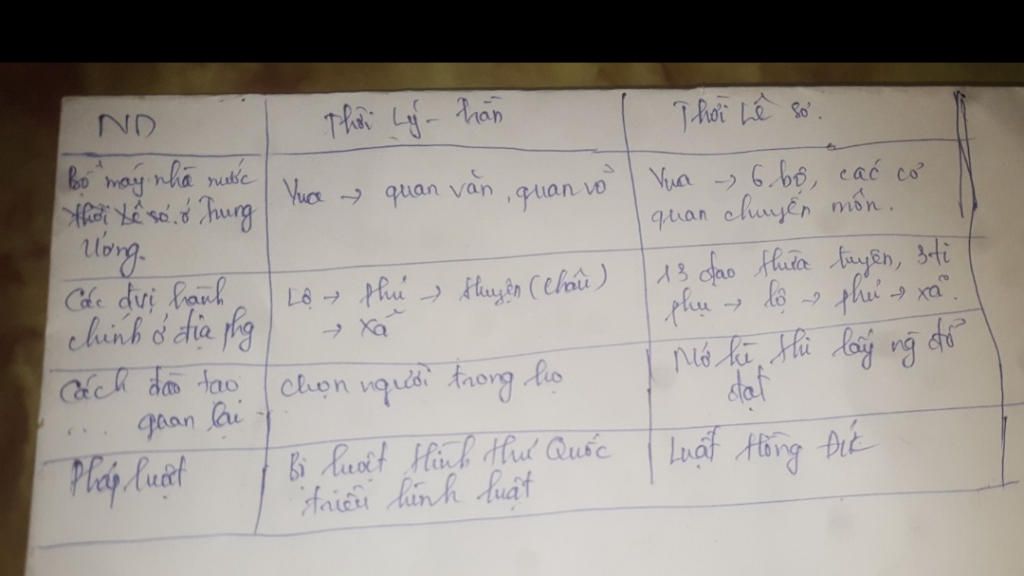 ND
Thời Lý - Trần
Thời Lê sơ.
Bộ máy nhà nước
thời Lê sơ. ở Trung
Ương.
Vua → quan văn, quan võ
Vua → 6 bộ, các cơ
quan chuyên môn.
Các đvị hành
chính ở địa phg
Lộ → phủ → huyện (châu)
→ xã
13 đạo thừa tuyên, 3 ti
phụ → lộ → phủ → xã.
Cách đào tạo
... quan lại
chọn người trong họ
Mở kì thi lấy ng đỗ
đạt
Pháp luật
Bộ luật Hình thư Quốc
triều hình luật
Luật Hồng Đức